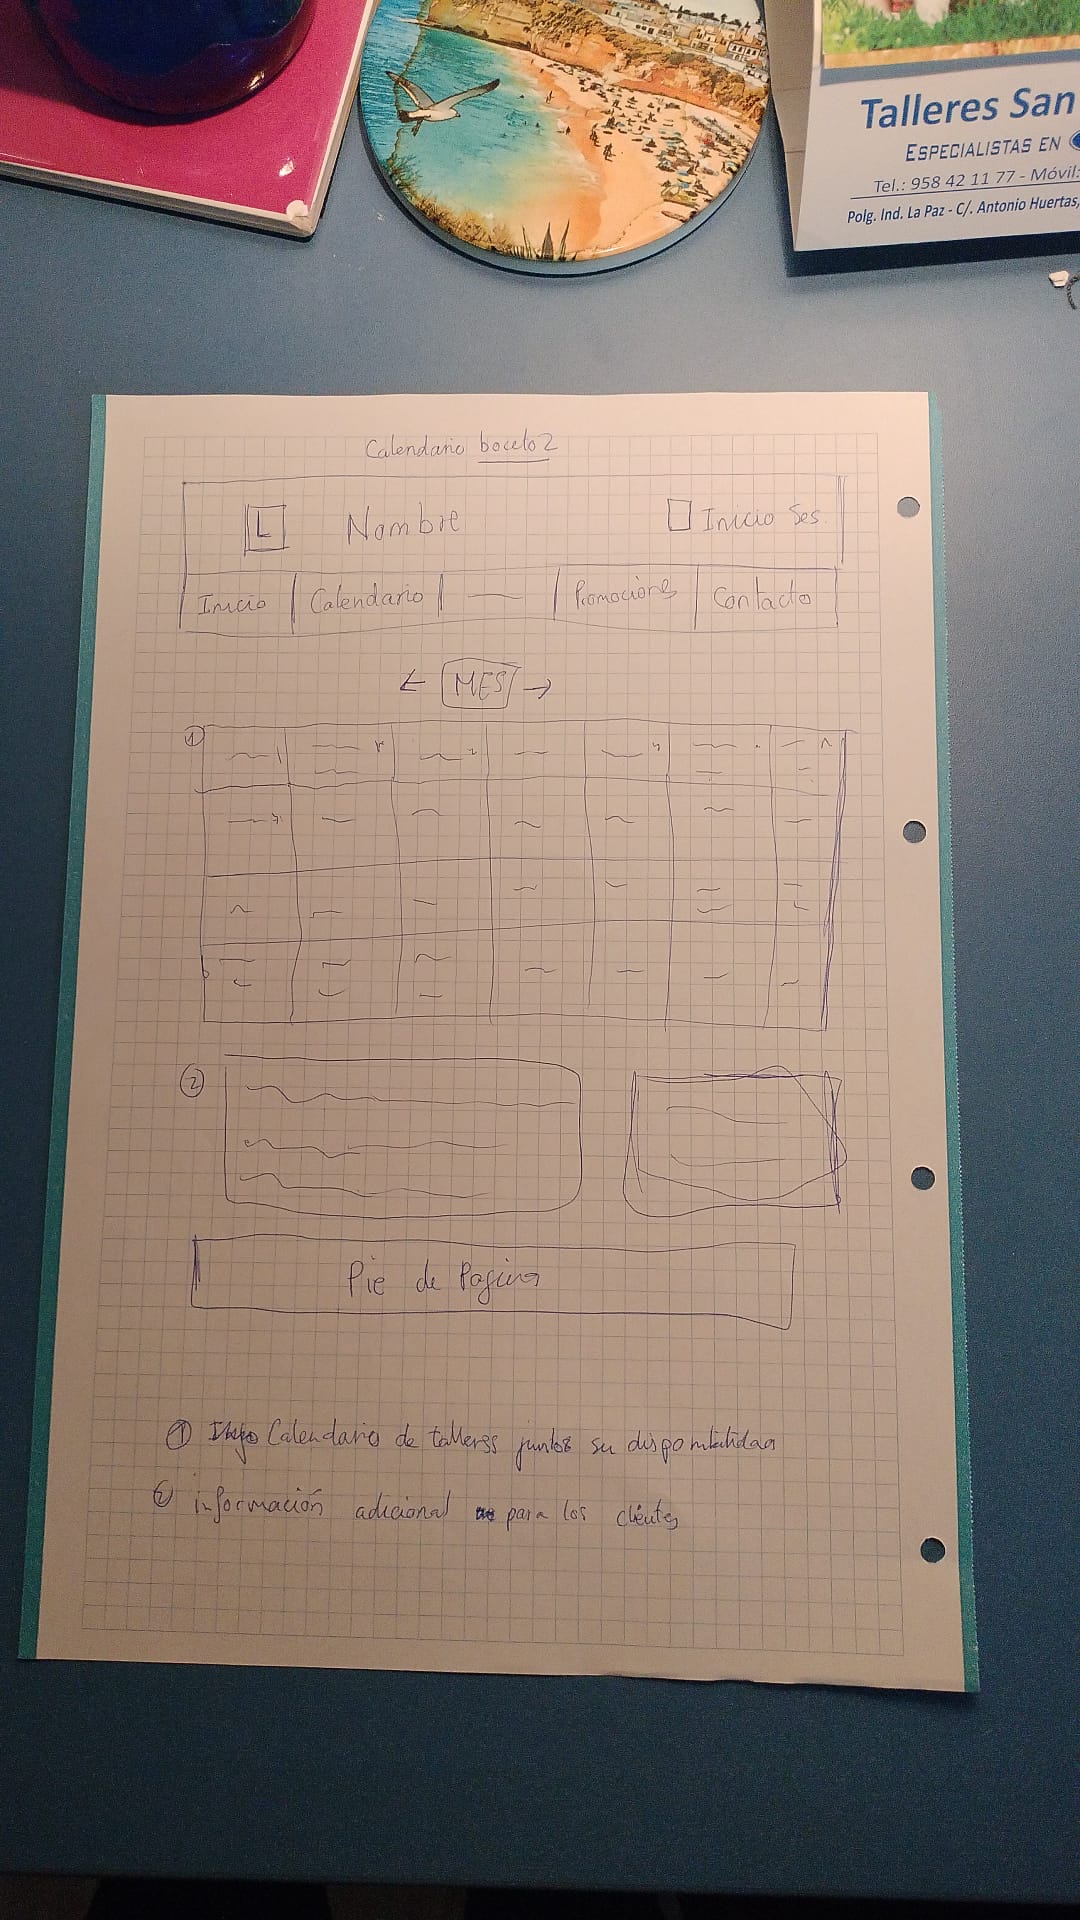 Talleres San
ESPECIALISTAS EN
Tel.: 958 42 11 77 - Móvil:
Polg. Ind. La Paz - C/. Antonio Huertas,
Calendario boceto 2
L Nombre Inicio Ses.
Inicio Calendario Promociones Contacto
← MES →
1
2
Pie de Pagina
1 Calendario de talleres juntos su disponibilidad
2 información adicional para los clientes